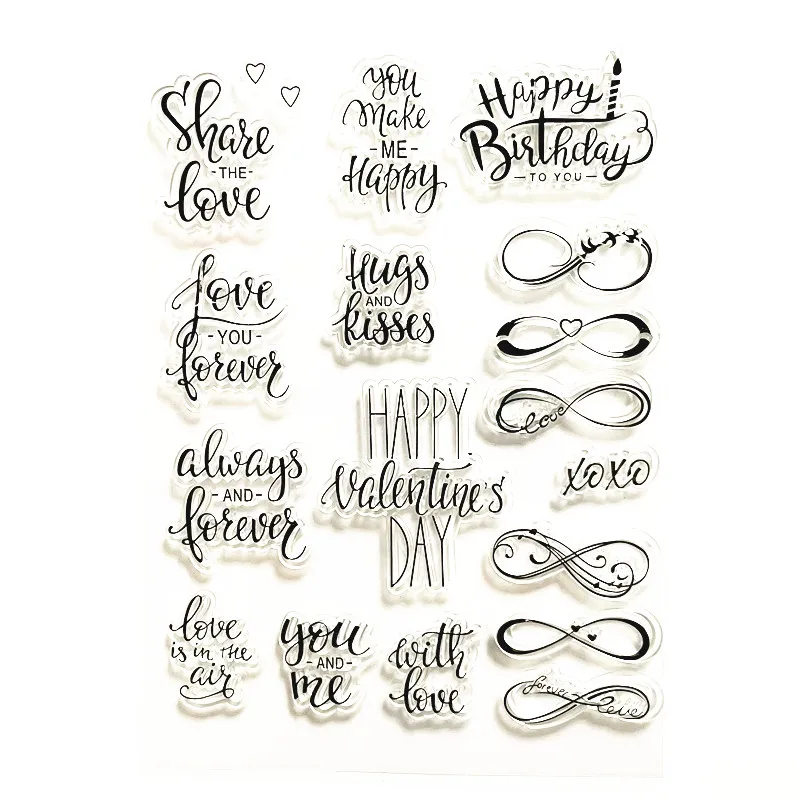 Share
- THE -
love
you
make
- ME -
Happy
Happy
Birthday
- TO YOU -
Love
- YOU -
forever
Hugs
AND
kisses
love
always
- AND -
forever
HAPPY
Valentine's
DAY
xoxo
love
is in the
air
you
- AND -
me
with
love
forever
love